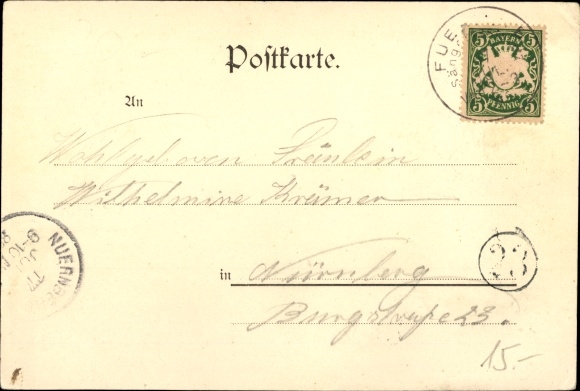 Postkarte.
FUE
Säng
5 BAYERN 5
5 PFENNIG 5
An
Wohlgeboren Fräulein
Wilhelmine Krämer
NUERN
9-10
in Nürnberg
23
Burgstraße 23.
15.-